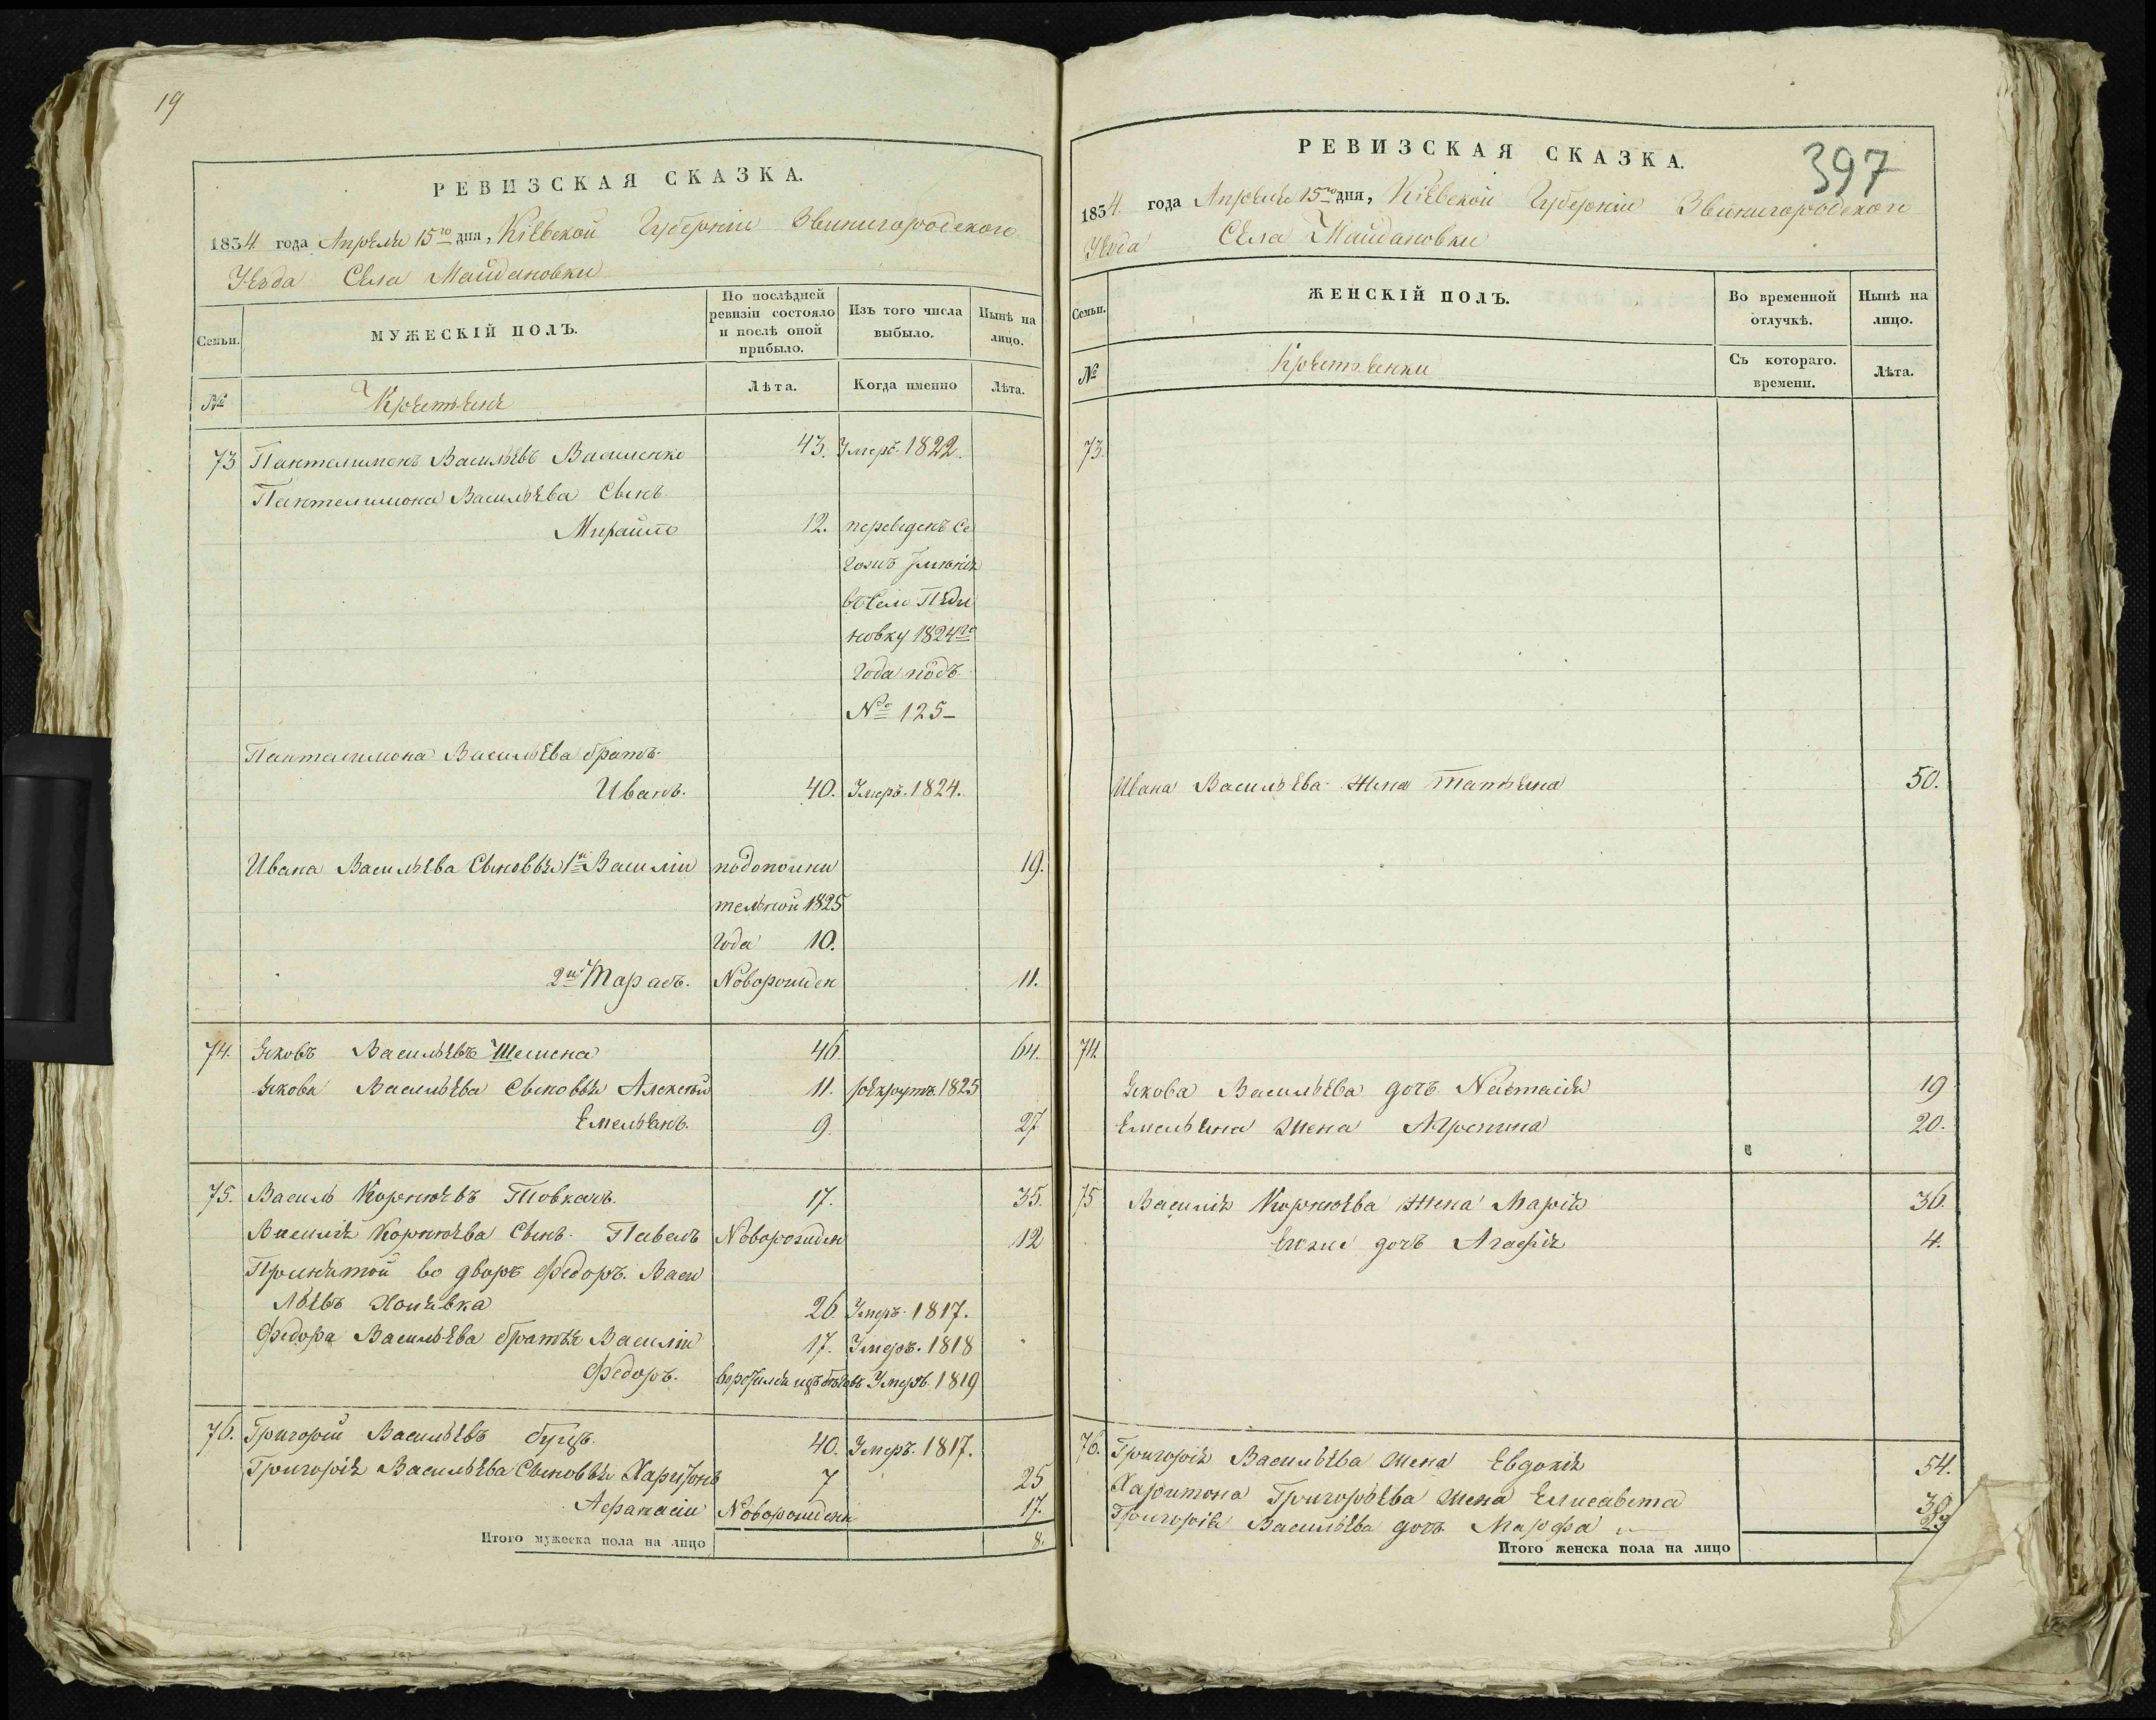 19
РЕВИЗСКАЯ СКАЗКА.
1834. года Апреля 15го дня, Кіевской Губерніи Звинигородскаго
Уезда Села Майдановки
Семьи.
МУЖЕСКІЙ ПОЛЪ.
По послѣдней ревизіи состояло и послѣ оной прибыло.
Изъ того числа выбыло.
Нынѣ на лицо.
№
Крестьяне
Лѣта.
Когда именно
Лѣта.
73 Пантелимонъ Васильевъ Василенко 43. Умеръ. 1822.
Пантелимона Васильева Сынъ
12. переведенъ Се
въ Село Педи
новку 1824го
Года подъ
№ 125
Пантелимона Васильева братъ
Иванъ. 40. Умеръ. 1824.
Ивана Васильева Сыновья 1й Василій 19.
тельной 1825
Года 10.
2й Тарасъ. Новорожден 11.
74. Яковъ Васильевъ 46 64.
Якова Васильева Сыновья Алексей 11. рекрутъ 1825
Емельянъ. 9. 27
75. Василь Корнюевъ Товкачъ. 17. 35.
Василія Корнюева Сынъ. Павелъ Новорожден 12
Принятой во дворъ Федоръ. Васи
льевъ 26 Умеръ. 1817.
Федора Васильева братья Василій 17. Умеръ. 1818
Федоръ. Умеръ. 1819
76. Григорій Васильевъ 40. Умеръ. 1817.
Григорія Васильева Сыновья Харитонъ 7 25
Афанасій Новорожденн 17.
Итого мужеска пола на лицо 8.
397
РЕВИЗСКАЯ СКАЗКА.
1834. года Апреля 15го дня, Кіевской Губерніи Звинигородскаго
Уезда Села Майдановки
Семьи.
ЖЕНСКІЙ ПОЛЪ.
Во временной отлучкѣ.
Нынѣ на лицо.
№
Крестьянки
Съ котораго. времени.
Лѣта.
73.
Ивана Васильева жена Татьяна 50.
74.
Якова Васильева дочь Настасія 19
Емельяна жена 20.
75 Василія Корнюева жена Марія 36.
дочь Агафія 4.
76. Григорія Васильева жена Евдокія 54.
Харитона Григорьева жена Елисавета
Григорія Васильева дочь Марфа
Итого женска пола на лицо